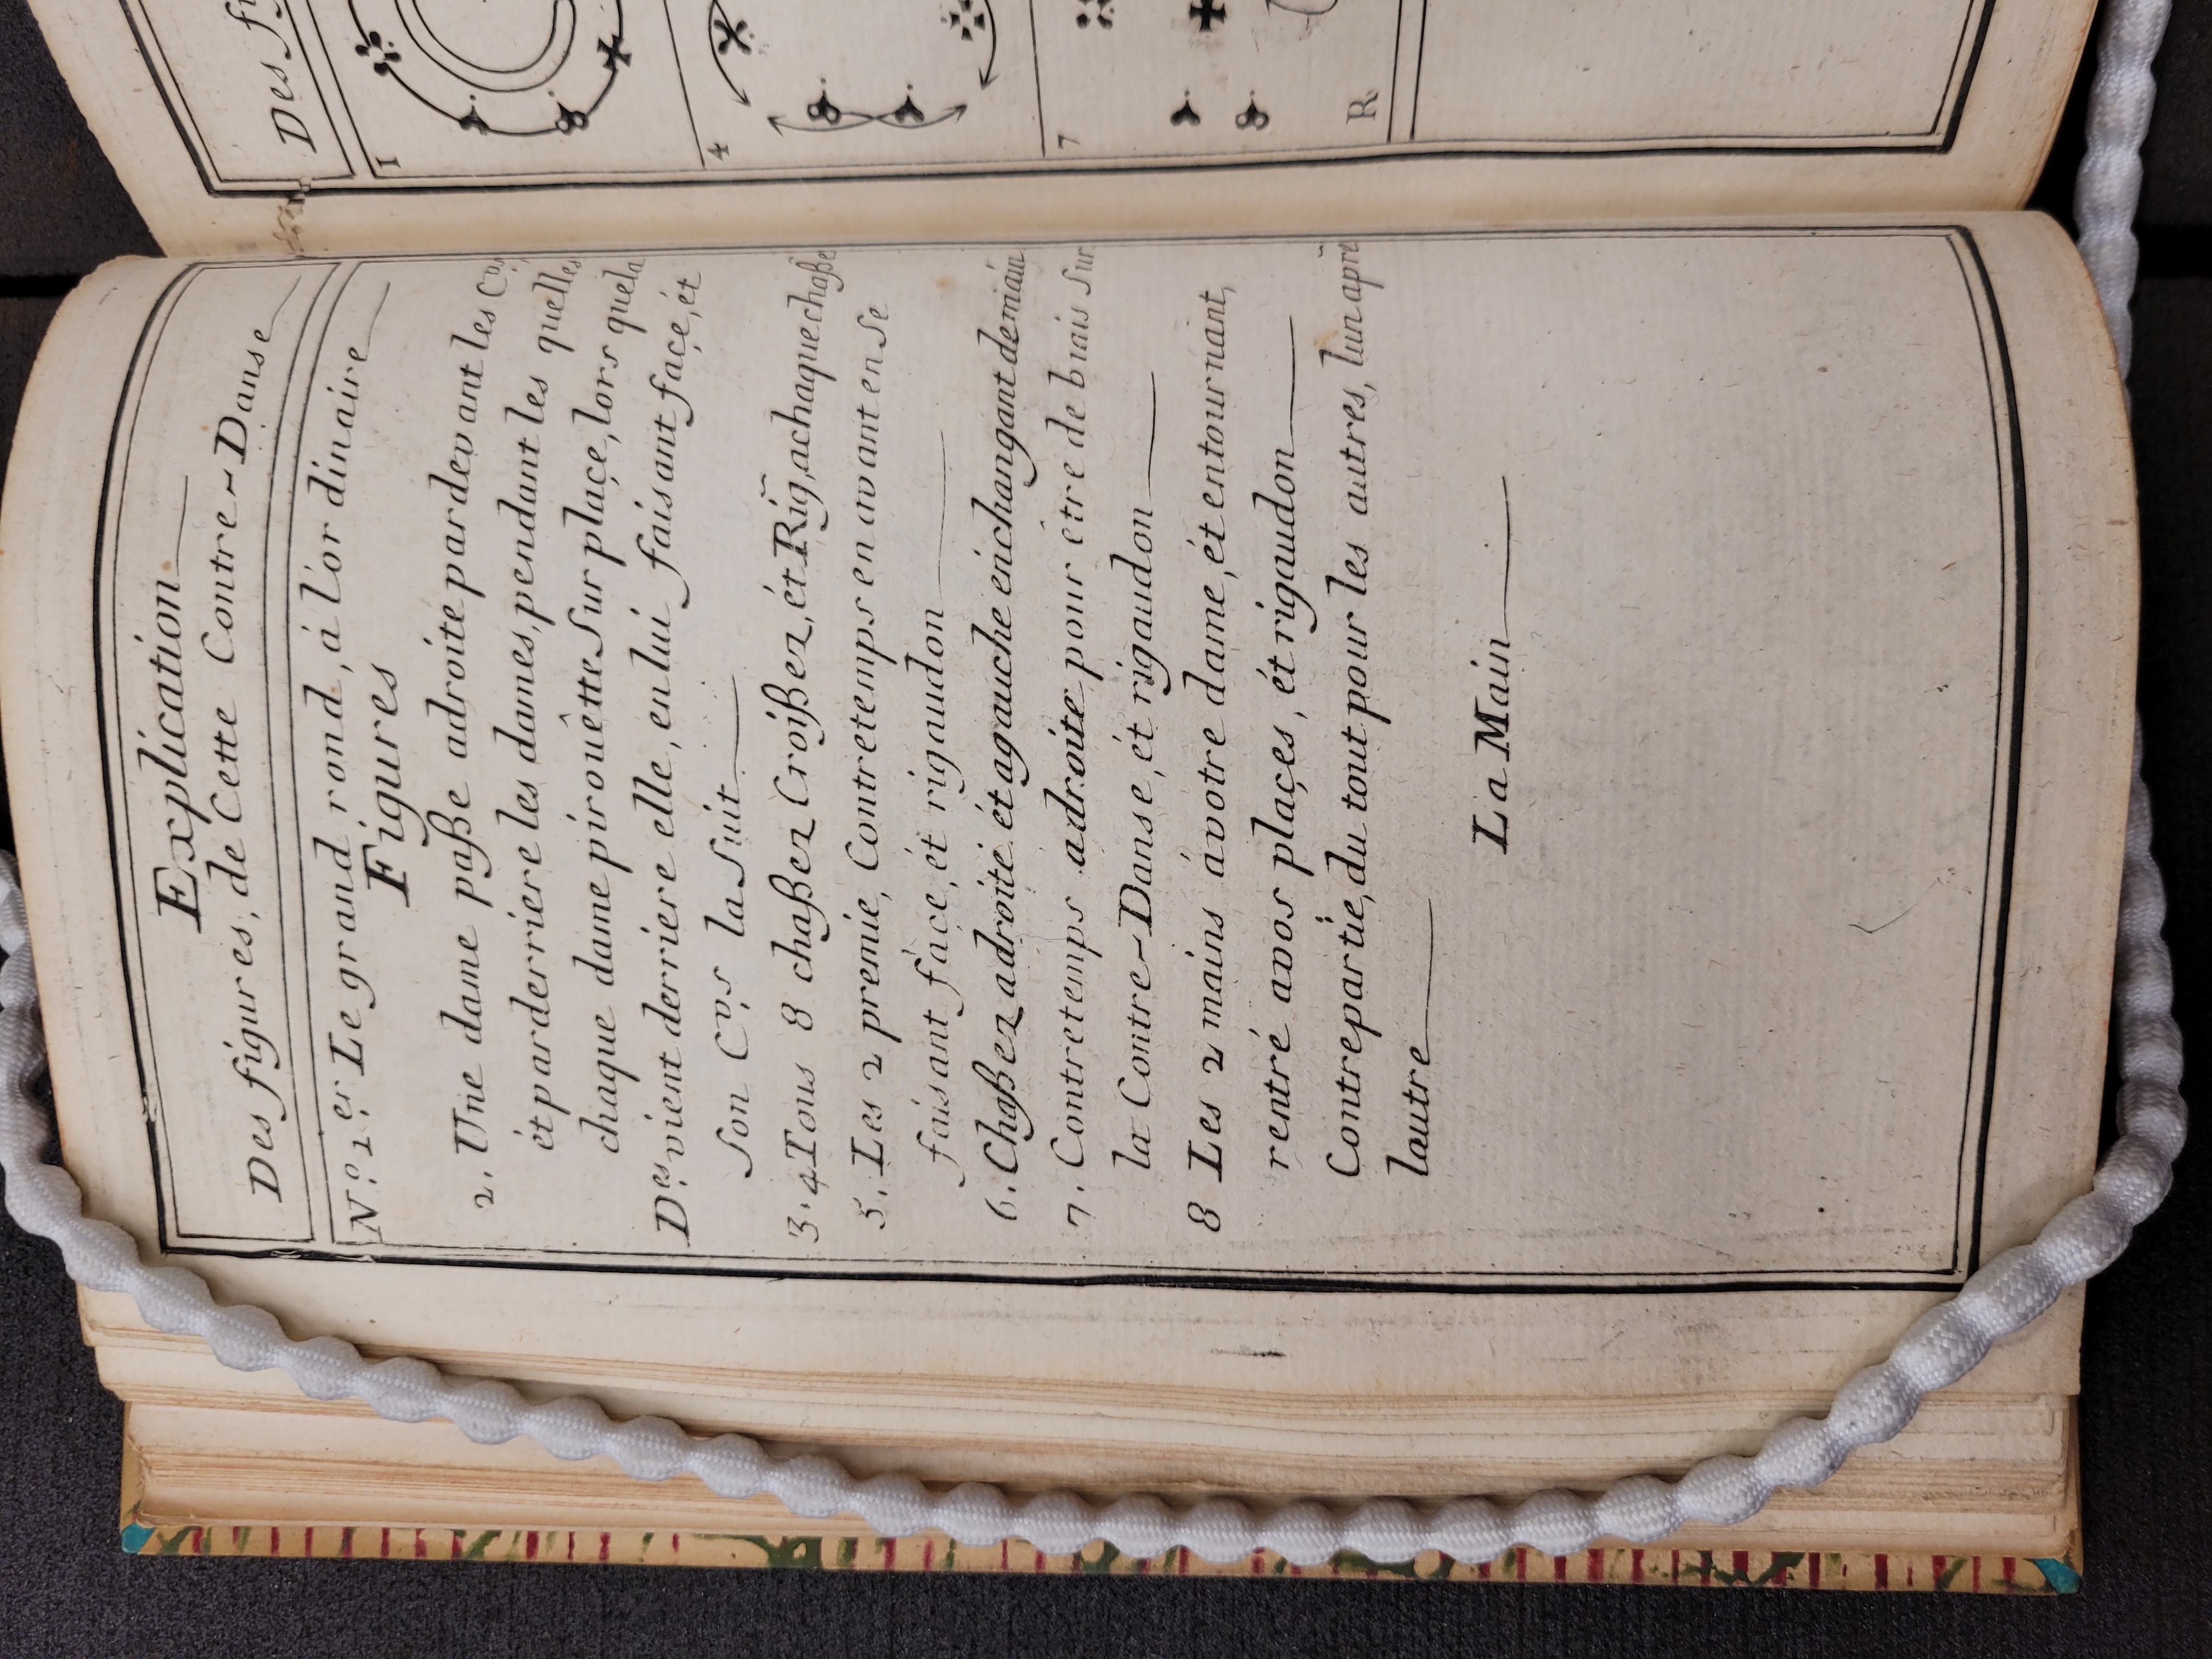 Explication
Des figures, de Cette Contre~Danse
N.º 1.er Le grand rond, à l'or dinaire
Figures
2. Une dame paße adroite pardevant les Cvs
ét parderriere les dames, pendant les quelles
chaque dame pirouêtte sur plaçe, lors quela
Des vient derriere elle, en lui faisant façe, ét
son Cvs la suit
3.4 Tous 8 chaßez Croißez, ét Rig, achaque chaße
5. Les 2 premie, Contretemps en avant en se
faisant façe, ét rigaudon
6. Chaßez adroite ét agauche enchangant demain
7. Contretemps adroite pour être de biais sur
la Contre~Danse, ét rigaudon
8 Les 2 mains àvotre dame, ét entournant,
rentré avos plaçes, ét rigaudon
Contrepartie, du tout pour les autres, lun apre
lautre
La Main
Des fi
1
4
7
R